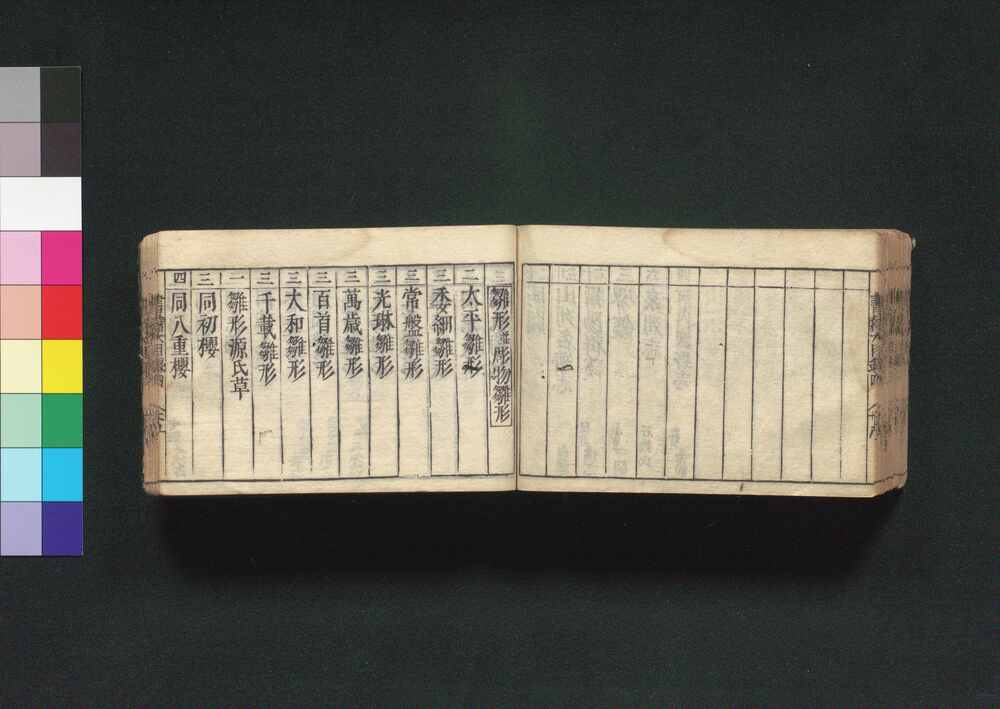 三 雛形 彫物雛形
二 太平雛形
三 委細雛形
三 常盤雛形
三 光琳雛形
三 萬歳雛形
三 百首雛形
三 大和雛形
三 千載雛形
一 雛形源氏草
三 同初櫻
四 同八重櫻